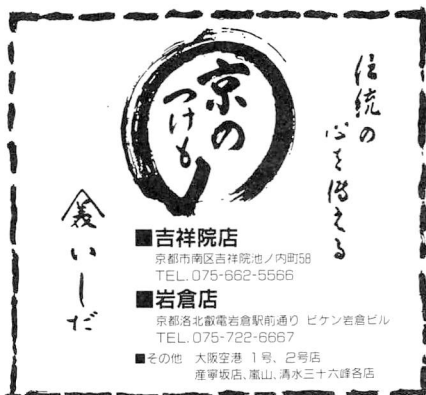 伝統の
心を伝える
京の
つけもの
義いしだ
■吉祥院店
京都市南区吉祥院池ノ内町58
TEL.075-662-5566
■岩倉店
京都洛北叡電岩倉駅前通り ビケン岩倉ビル
TEL.075-722-6667
■その他 大阪空港 1号、2号店
産寧坂店、嵐山、清水三十六峰各店